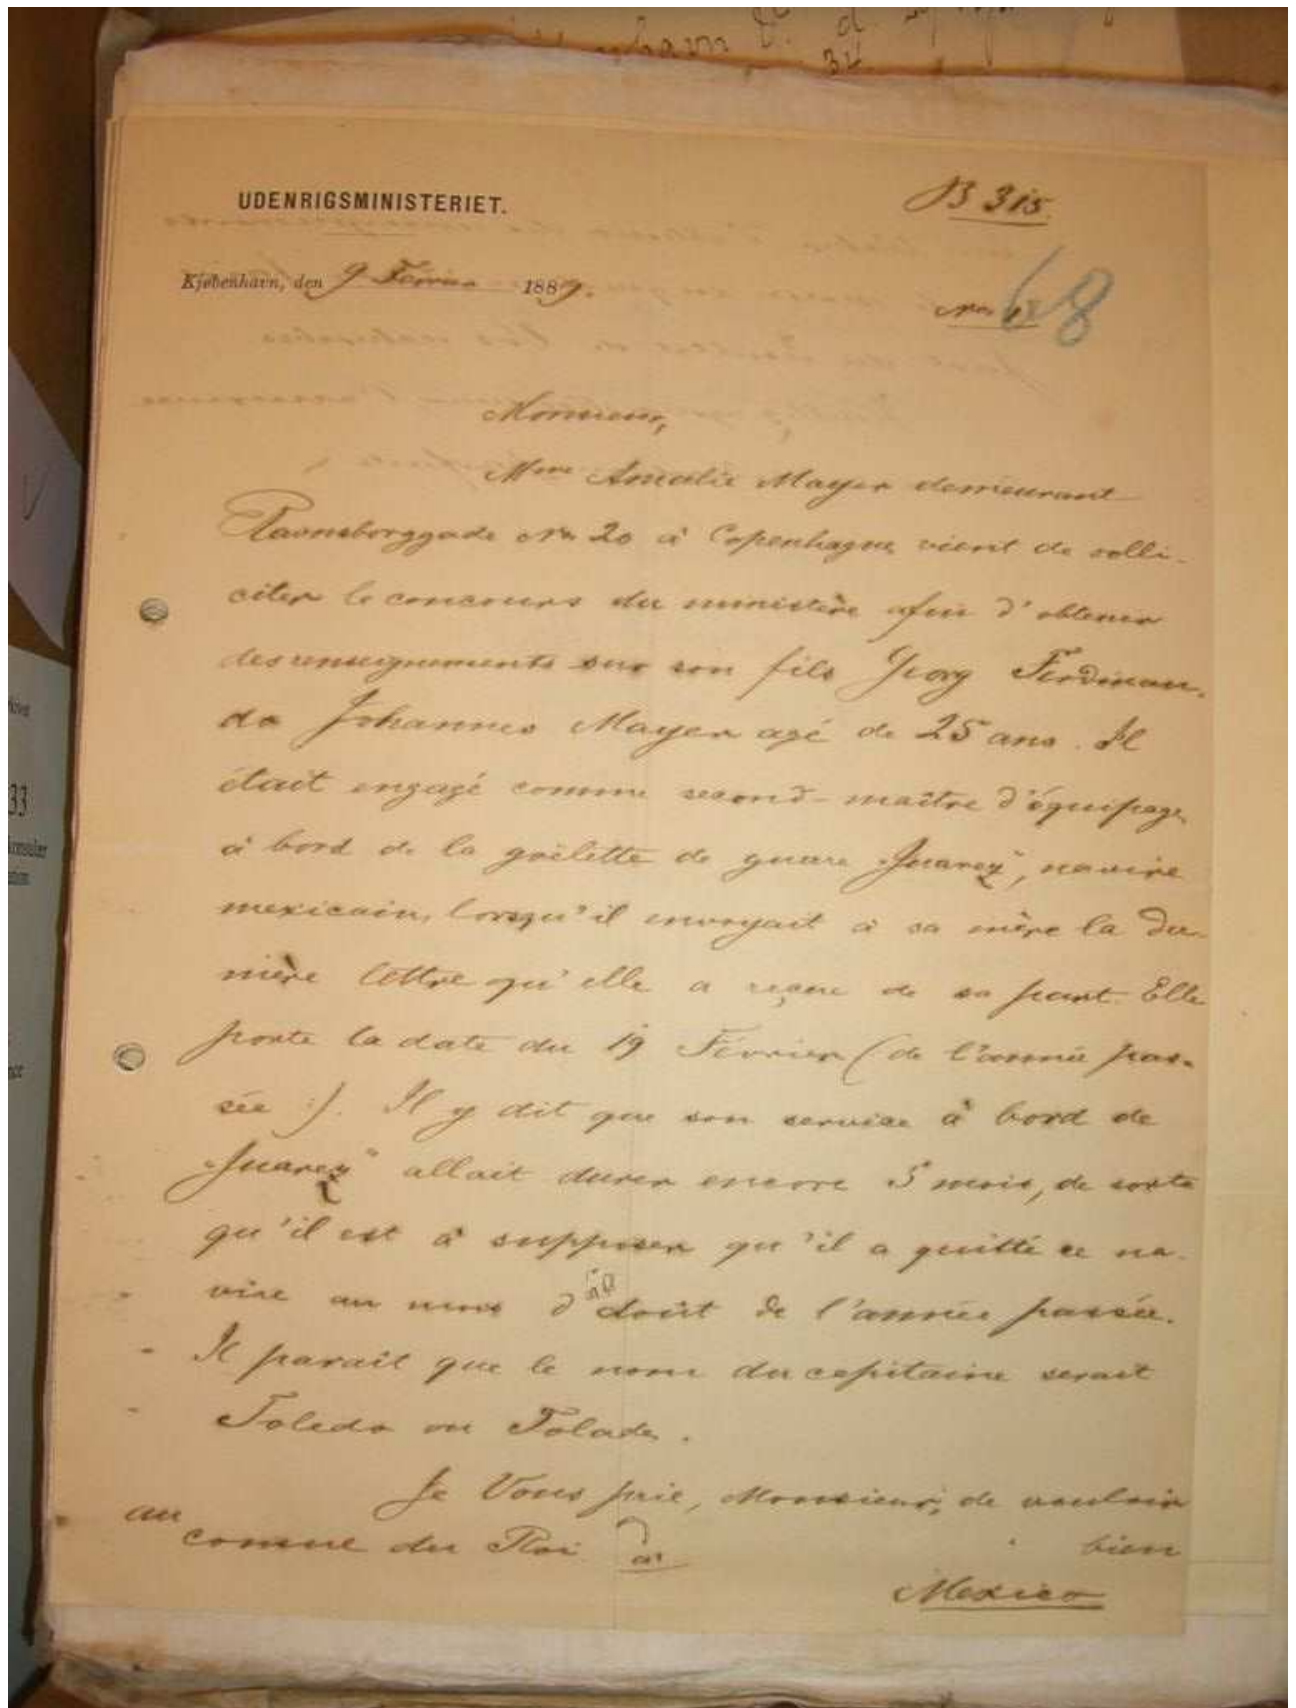 UDENRIGSMINISTERIET.
B 315.
Kjøbenhavn, den 9 Février 1889.
No 1
68
Monsieur,
Mme Amalie Mayer demeurant
Ravnsborggade No 20 à Copenhague vient de solli-
citer le concours du ministère afin d'obtenir
des renseignements sur son fils Georg Ferdinan-
do Johannes Mayer agé de 25 ans. Il
était engagé comme second-maître d'équipage
à bord de la goëlette de guerre „Juarez", navire
mexicain, lorsqu'il envoyait à sa mère la der-
nière lettre qu'elle a reçue de sa part. Elle
porte la date du 19 Février (de l'année pas-
sée :). Il y dit que son service à bord de
„Juarez" allait durer encore 5 mois, de sorte
qu'il est à supposer qu'il a quitté ce na-
vire au mois d'août de l'année passée.
Il parait que le nom du capitaine serait
Toledo ou Tolade.
Je Vous prie, Monsieur, de vouloir
bien
au
consul du Roi à
Mexico